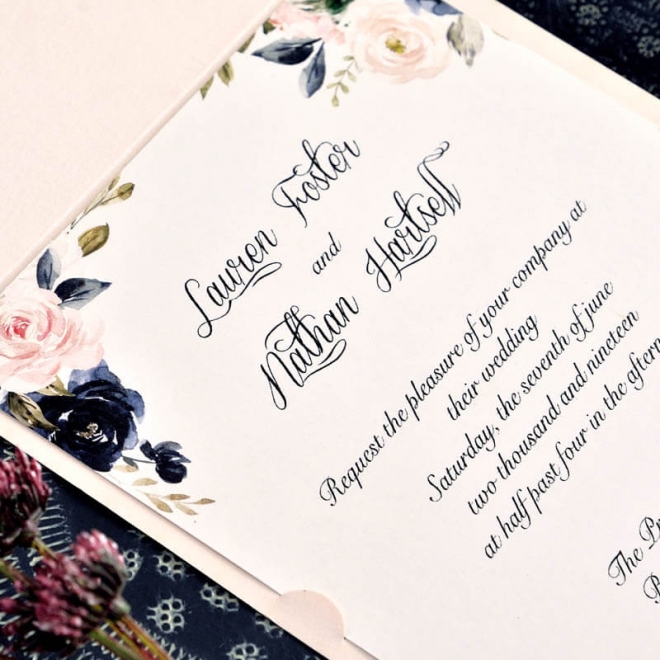 Lauren Foster
and
Nathan Hartsell
Request the pleasure of your company at
their wedding
Saturday, the seventh of june
two thousand and nineteen
at half past four in the
The